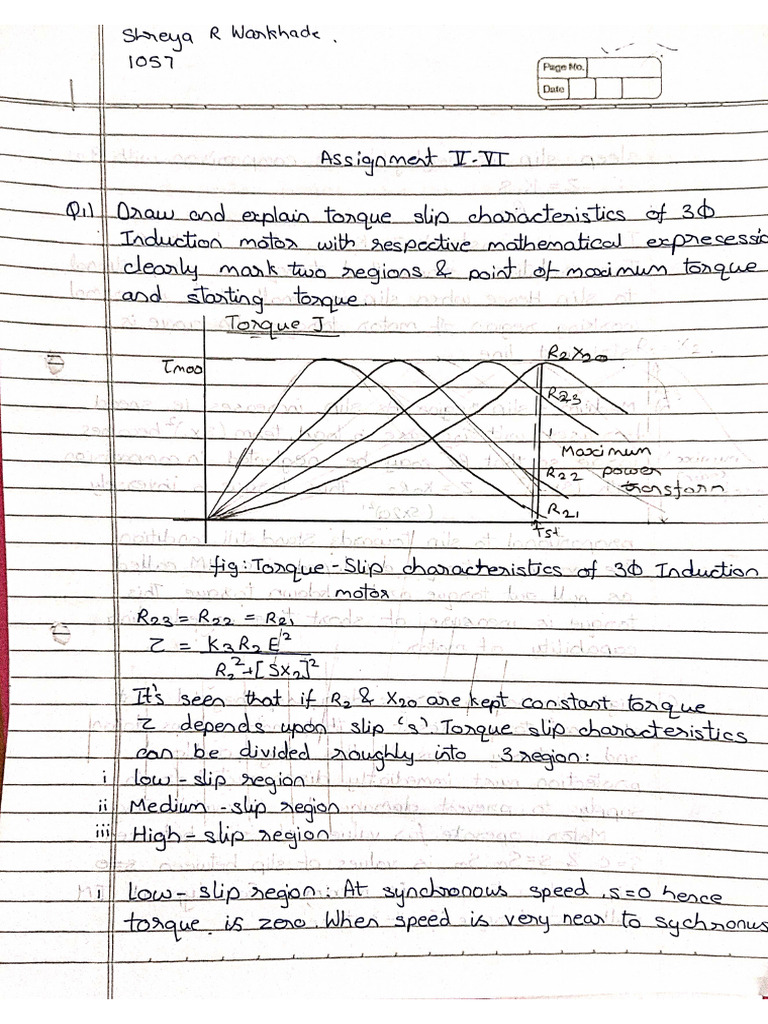 Shreya R Warkhade.
1057
Page No.
Date
Assignment V-VI
Q.1) Draw and explain torque slip characteristics of 3Φ
Induction motor with respective mathematical exprecessio
clearly mark two regions & point of maximum torque
and starting torque
Torque J
R2X20
Tmoo
R23
Maximum
R22 power
transform
R21
Tst
fig: Torque-Slip characheristics of 3Φ Induction
motor
R23 = R22 = R21
τ = K3R2E²
R2²+[SX2]²
It's seen that if R2 & X20 are kept constant torque
τ depends upon slip 's'. Torque slip characteristics
can be divided roughly into 3 region:
i low-slip region
ii Medium-slip region
iii High-slip region
i Low-slip region: At synchronous speed, s=0 hence
torque is zero. When speed is very near to sychronus